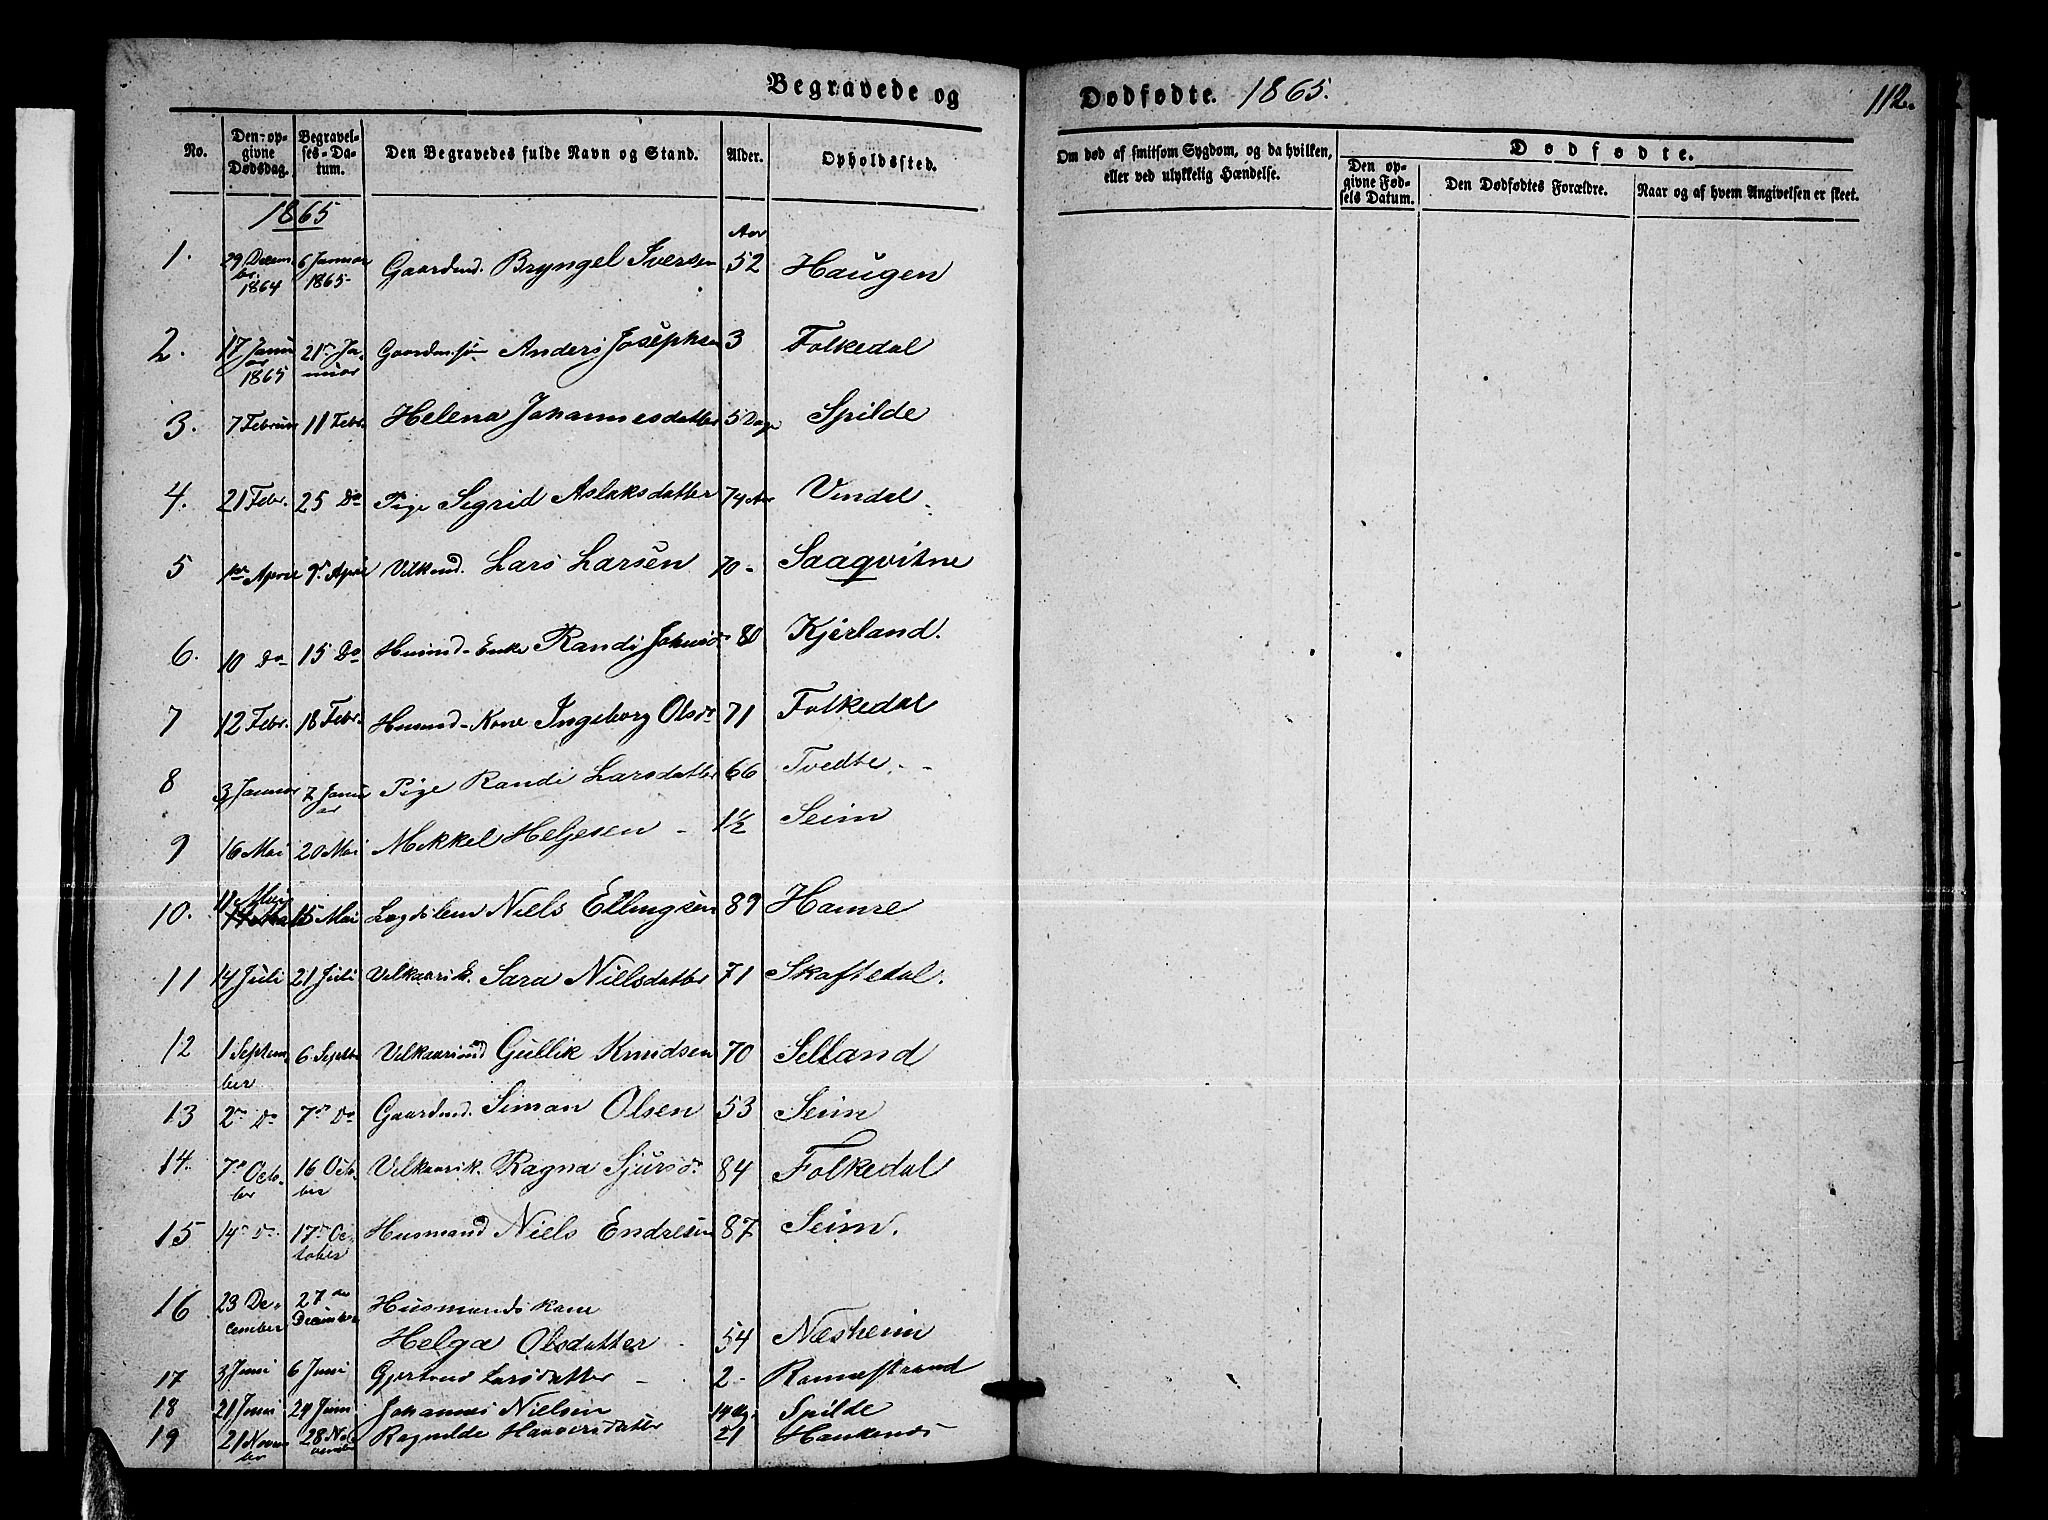 Begravede og Dødfødte. 1865. 112.
No. Den op- givne Dødsdag. Begravel- ses-Da- tum. Den Begravedes fulde Navn og Stand. Alder. Opholdssted.
Om død af smitsom Sygdom, og da hvilken, eller ved ulykkelig Hændelse. Dødfødte. Den op- givne Fød- sels Datum. Den Dødfødtes Forældre. Naar og af hvem Angivelsen er skeet.
1865
1. 29 Decem br. 1864 6 Januar 1865 Gaardmd. Bryngel Iversen Aar 52 Haugen
2. 17 Janu ar 1865 21de Ja- nuar Gaardm. søn Anders Josephsen 3 Folkedal
3. 7 Februar 11 Febr. Helena Johannesdatter 5 Dage Spilde
4. 21 Febr. 25 Do Pige Sigrid Aslaksdatter 74 Aar Vindal
5 1ste April 9de April Vilkmd. Lars Larsen 70 - Saaqvitne
6. 10 Do 15 Do Husmd- Enke Randi Johnsdr 80 Kjerland.
7 12 Febr. 18 Febr. Husmd- Kone Ingeborg Olsdr 71 Folkedal
8 3 Januar 7 Janu ar Pige Randi Larsdatter 66 Tvedte
9 16 Mai 20 Mai Mikkel Helgesen - 1½ Seim
10. 11 Mai 15 Mai Lægdslem Niels Ellingsen 89 Hamre
11 14 Juli 21 Juli Vilkaarsk. Sara Nielsdatter 71 Skaftedal.
12 1 Septem ber 6 Septbr Vilkaarsmd Gullik Knudsen 70 Selland
13 2de Do 7de Do Gaardmd. Siman Olsen 53 Seim
14. 7de Octo- ber 16 Octo- ber Vilkaarsk. Ragna Sjursdr 84 Folkedal
15 14de Do 17de Oc- tober Husmand Niels Endresen 87 Seim.
16 23 De- cember 27de December Husmandskone
Helga Olsdatter 54 Næsheim
17 3 Juni 6 Juni Gjertrud Larsdatter - 2 - Ramnestrand
18 21 Juni 24 Juni Johannes Nielsen 14 Dg. Spilde
19 21 Novem ber 28 No- vember Ragnilde Haaversdatter 21 Haukenæs